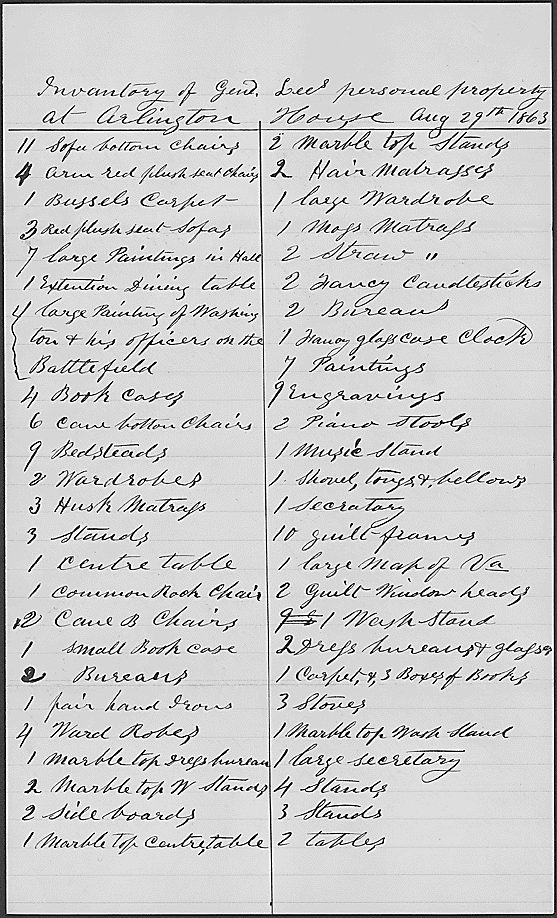 Inventory of Genl. Lees personal property
at Arlington House Aug 29th 1863
11 Sofa bottom Chairs
4 Arm red plush seat Chairs
1 Bussels Carpet
3 Red plush seat Sofas
7 large Paintings in Hall
1 Extention Dining table
4 large Painting of Washing
ton & his officers on the
Battlefield
4 Book cases
6 cane botton Chairs
9 Bedsteads
2 Wardrobes
3 Husk Matrass
3 Stands
1 centre table
1 common Rook Chair
2 Cane B Chairs
1 small Book case
2 Bureaus
1 pair hand Irons
4 Ward Robes
1 marble top dress bureau
2 Marble top W Stands
2 side boards
1 Marble top centre table
2 Marble top Stands
2 Hair Matrasses
1 large Wardrobe
1 Moss Matrass
2 Straw "
2 Fancy Candlesticks
2 Bureaus
1 Fancy glass case Clock
7 Paintings
9 Engravings
2 Piano Stools
1 Music Stand
1 Shovel, tongs &, bellows
1 Secratary
10 guilt frames
1 large Map of Va
2 Guilt Window heads
1 Wash Stand
2 Dress bureaus & glasses
1 Carpet, &, 3 Boxes of Books
3 Stoves
1 Marble top Wash Stand
1 large secretary
4 Stands
3 Stands
2 tables